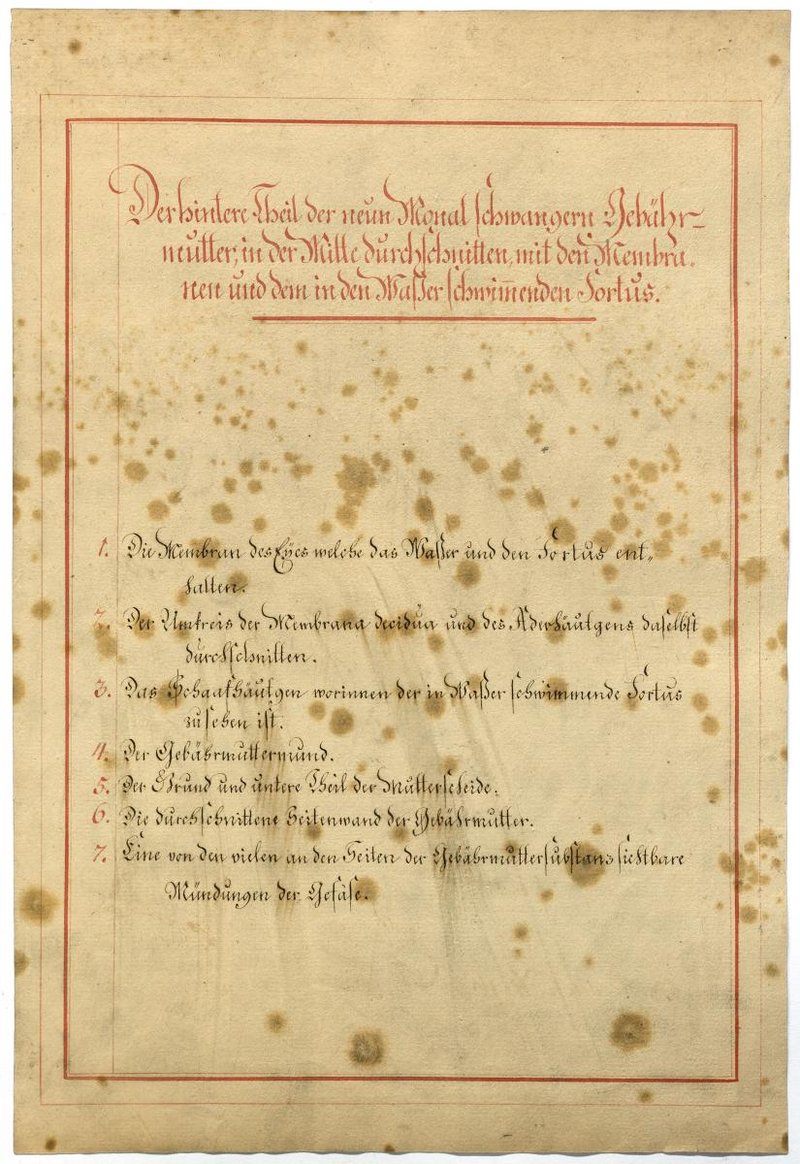 Der hintere Theil der neun Monat schwangern Gebähr-
mutter, in der Mitte durchschnitten, mit den Membra-
nen und dem in den Waßer schwim̅enden Fortus.
1. Die Membran des Eyes welche das Waßer und den Fortus ent-
halten.
2. Der Umkreis der Membrana decidua und des Aderhäutgens daselbst
durchschnitten.
3. Das Schaafhäutgen worinnen der in Waßer schwimmende Fortus
zu sehen ist.
4. Der Gebährmuttermund.
5. Der Grund und untere Theil der Mutterscheide.
6. Die durchschnittene Seitenwand der Gebährmutter.
7. Eine von den vielen an den Seiten der Gebährmuttersubstanz sichtbare
Mündungen der Gefäse.